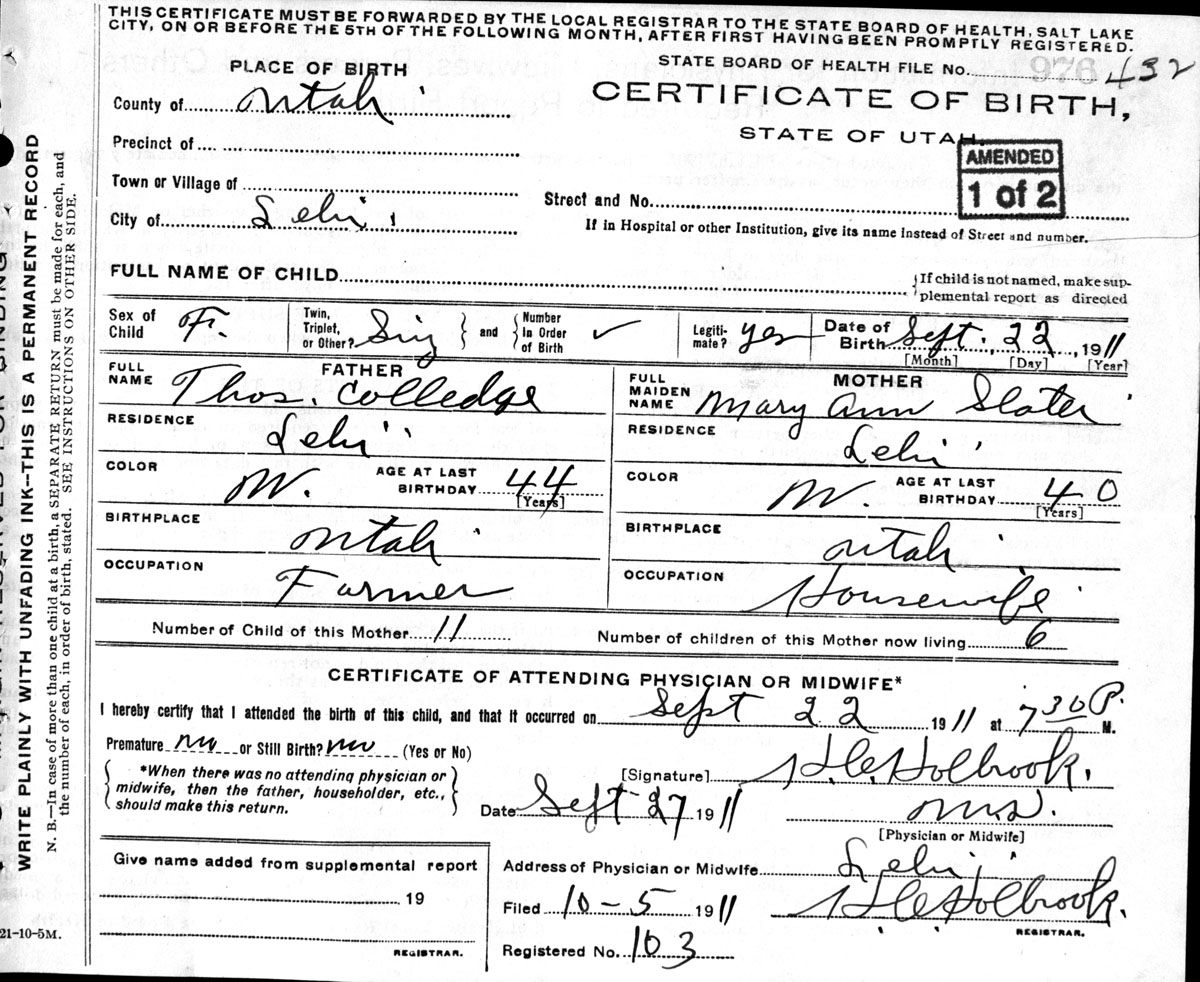 THIS CERTIFICATE MUST BE FORWARDED BY THE LOCAL REGISTRAR TO THE STATE BOARD OF HEALTH, SALT LAKE
CITY, ON OR BEFORE THE 5TH OF THE FOLLOWING MONTH, AFTER FIRST HAVING BEEN PROMPTLY REGISTERED.
PLACE OF BIRTH
STATE BOARD OF HEALTH FILE No. 976 432
County of Utah
CERTIFICATE OF BIRTH,
STATE OF UTAH.
Precinct of
AMENDED
1 of 2
Town or Village of
Street and No.
City of Lehi
If in Hospital or other Institution, give its name instead of Street and number.
FULL NAME OF CHILD
If child is not named, make sup-
plemental report as directed
Sex of Child F.
Twin, Triplet, or Other? Sing
and
Number In Order of Birth ✓
Legiti-mate? yes
Date of Birth Sept. 22, 1911
[Month] [Day] [Year]
FATHER
FULL NAME Thos. Colledge
MOTHER
FULL MAIDEN NAME Mary Ann Slater
RESIDENCE Lehi
RESIDENCE Lehi
COLOR W. AGE AT LAST BIRTHDAY 44 [Years]
COLOR W. AGE AT LAST BIRTHDAY 40 [Years]
BIRTHPLACE Utah
BIRTHPLACE Utah
OCCUPATION Farmer
OCCUPATION Housewife
Number of Child of this Mother 11 Number of children of this Mother now living 6
CERTIFICATE OF ATTENDING PHYSICIAN OR MIDWIFE*
I hereby certify that I attended the birth of this child, and that it occurred on Sept 22 1911 at 7 30 P. M.
Premature no or Still Birth? no (Yes or No)
*When there was no attending physician or
midwife, then the father, householder, etc.,
should make this return.
[Signature] H.C. Holbrook.
Date Sept 27 1911 M.D.
[Physician or Midwife]
Give name added from supplemental report
19
REGISTRAR.
Address of Physician or Midwife Lehi
Filed 10-5 1911 H C Holbrook.
REGISTRAR.
Registered No. 103
21-10-5M.
WRITE PLAINLY WITH UNFADING INK—THIS IS A PERMANENT RECORD
N. B.—In case of more than one child at a birth, a SEPARATE RETURN must be made for each, and
the number of each, in order of birth, stated. SEE INSTRUCTIONS ON OTHER SIDE.